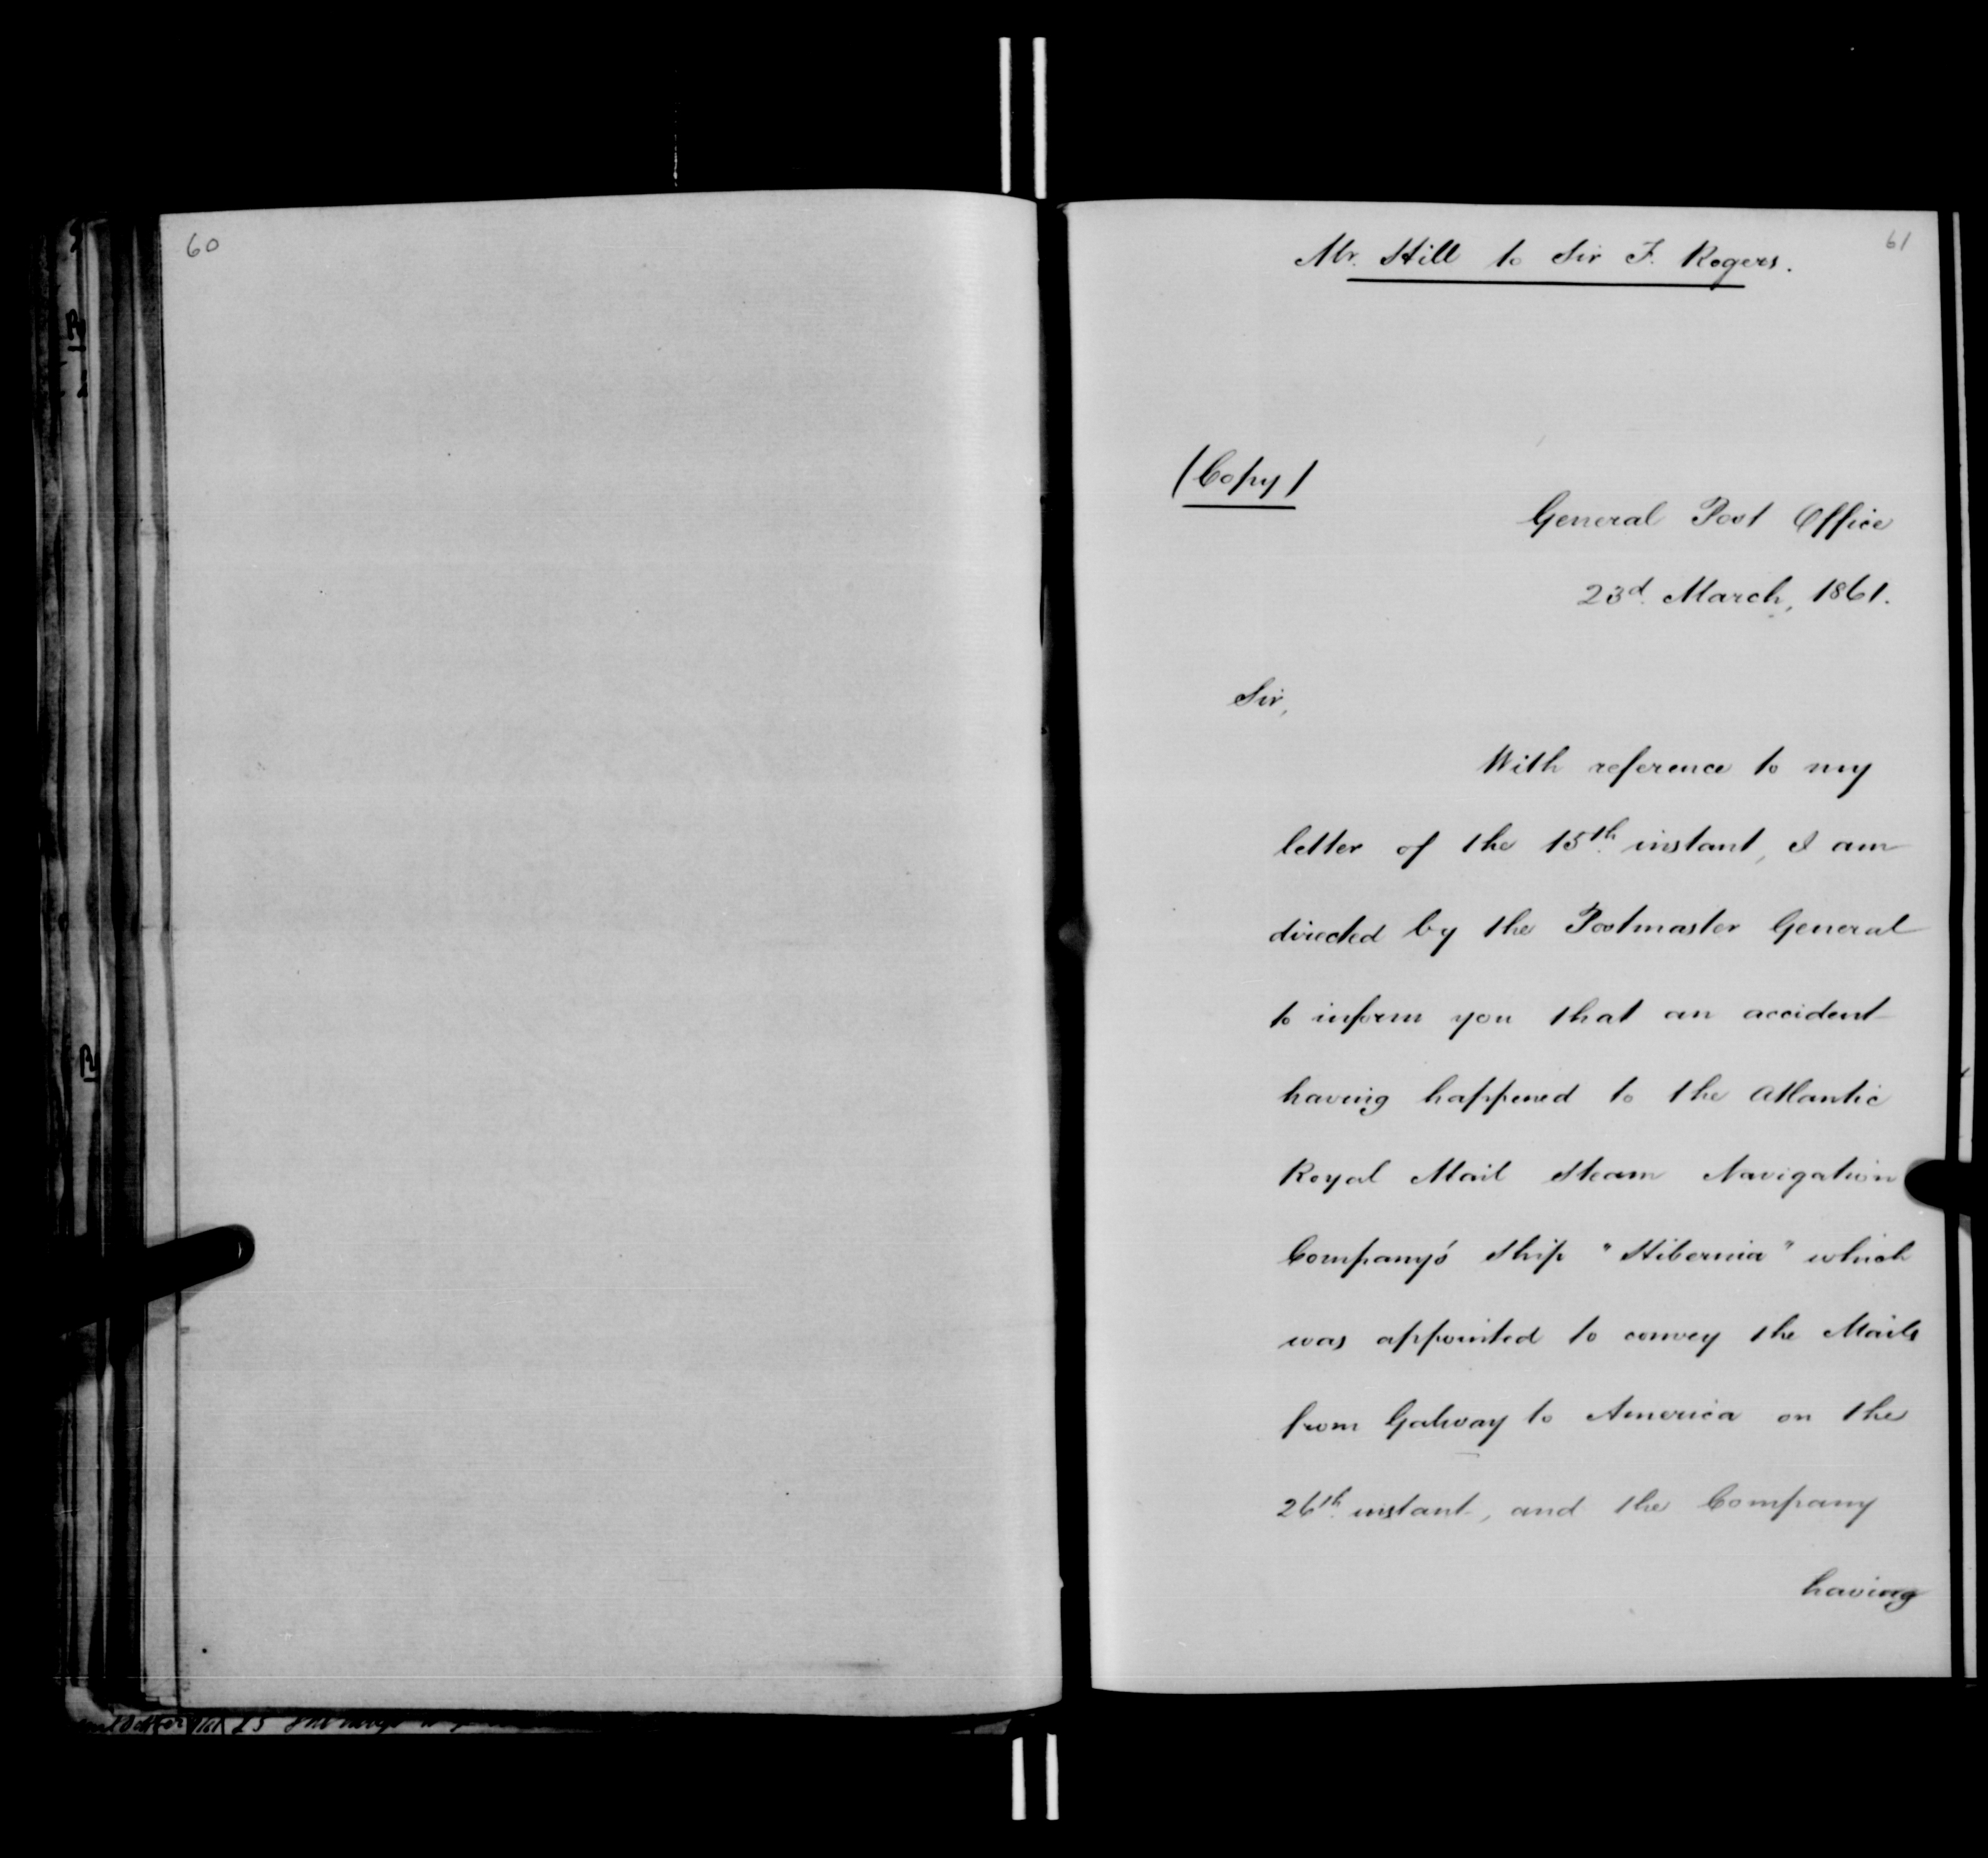 60
61
Mr. Hill to Sir F. Rogers.
(Copy)
General Post Office
23d. March, 1861.
Sir,
With reference to my
letter of the 15th. instant, I am
directed by the Postmaster General
to inform you that an accident
having happened to the Atlantic
Royal Mail Steam Navigation
Company's Ship "Hibernia" which
was appointed to convey the Mails
from Galway to America on the
26th. instant, and the Company
having